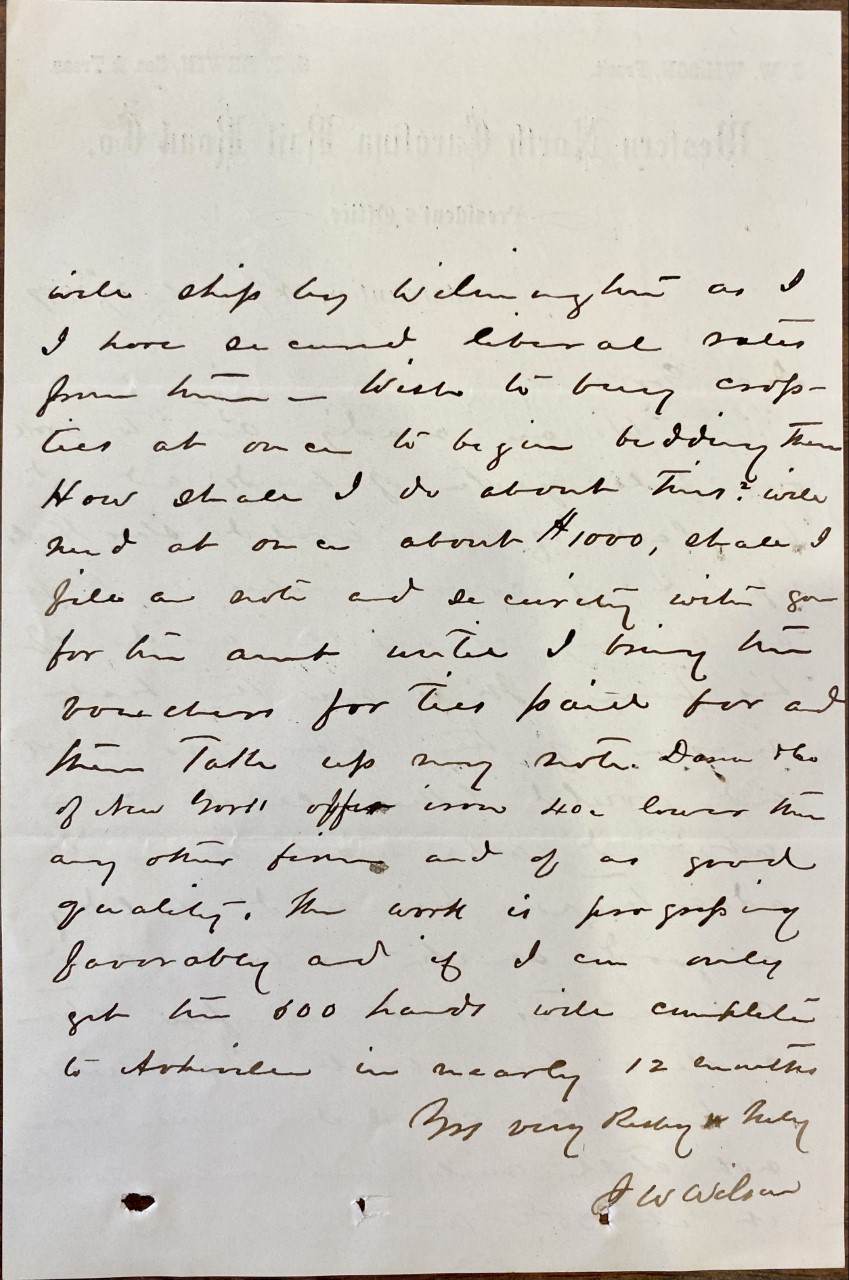 will ship by Wilmington as I
I have secured liberal rates
from them – Wish to buy cross-
ties at once to begin bedding them
How shall I do about this? will
need at once about $1000, shall I
file a note and security with you
for the amt until I bring the
vouchers for ties paid for and
then Take up my note. Dana & Co
of New York offer iron 40c lower than
any other firm and of as good
quality. The work is progressing
favorably and if I can only
get the 500 hands will complete
to Asheville in nearly 12 months
Yrs very Resby & truly
J W Wilson